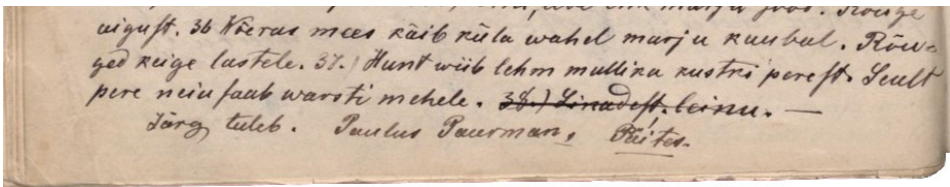 aigust. 36 Wõeras mees käib küla wahel marju kaubal. Rõu-
ged keige lastele. 37.) Hunt wiib lehm mullika kustki perest. Sealt
pere neiu saab warsti mehele. 38.) Linadest. leinu. —
Järg tuleb. Paulus Paurman,